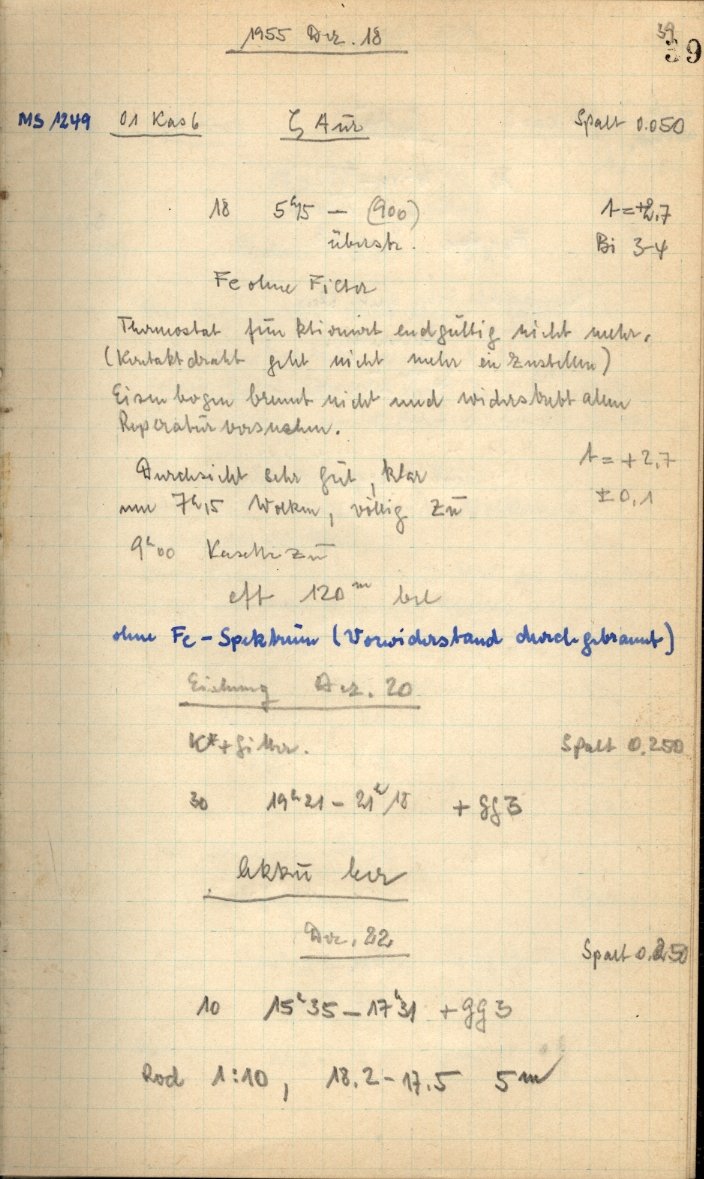 1955 Dez. 18
39
39
MS 1249 01 Kas 6 ζ Aur Spalt 0.050
18 5ʰ15 — (900) t = +2,7
überstr. Bi 3-4
Fe ohne Filter
Thermostat funktioniert endgültig nicht mehr.
(Kontaktdraht geht nicht mehr einzustellen)
Eisenbogen brennt nicht und widerstrebt allen
Reperaturversuchen.
Durchsicht sehr gut, klar t = +2,7
um 7ʰ15 Wolken, völlig zu ± 0,1
9ʰ00 Kasette zu
eff 120ᵐ bel
ohne Fe-Spektrum (Vorwiderstand durchgebrannt)
Eichung Dez. 20
K*+Gitter. Spalt 0,250
30 19ʰ21 – 21ʰ18 + gg3
Akku leer
Dez. 22
Spalt 0.250
10 15ʰ35 – 17ʰ31 + gg3
Rod 1:10, 18.2-17.5 5ᵐ